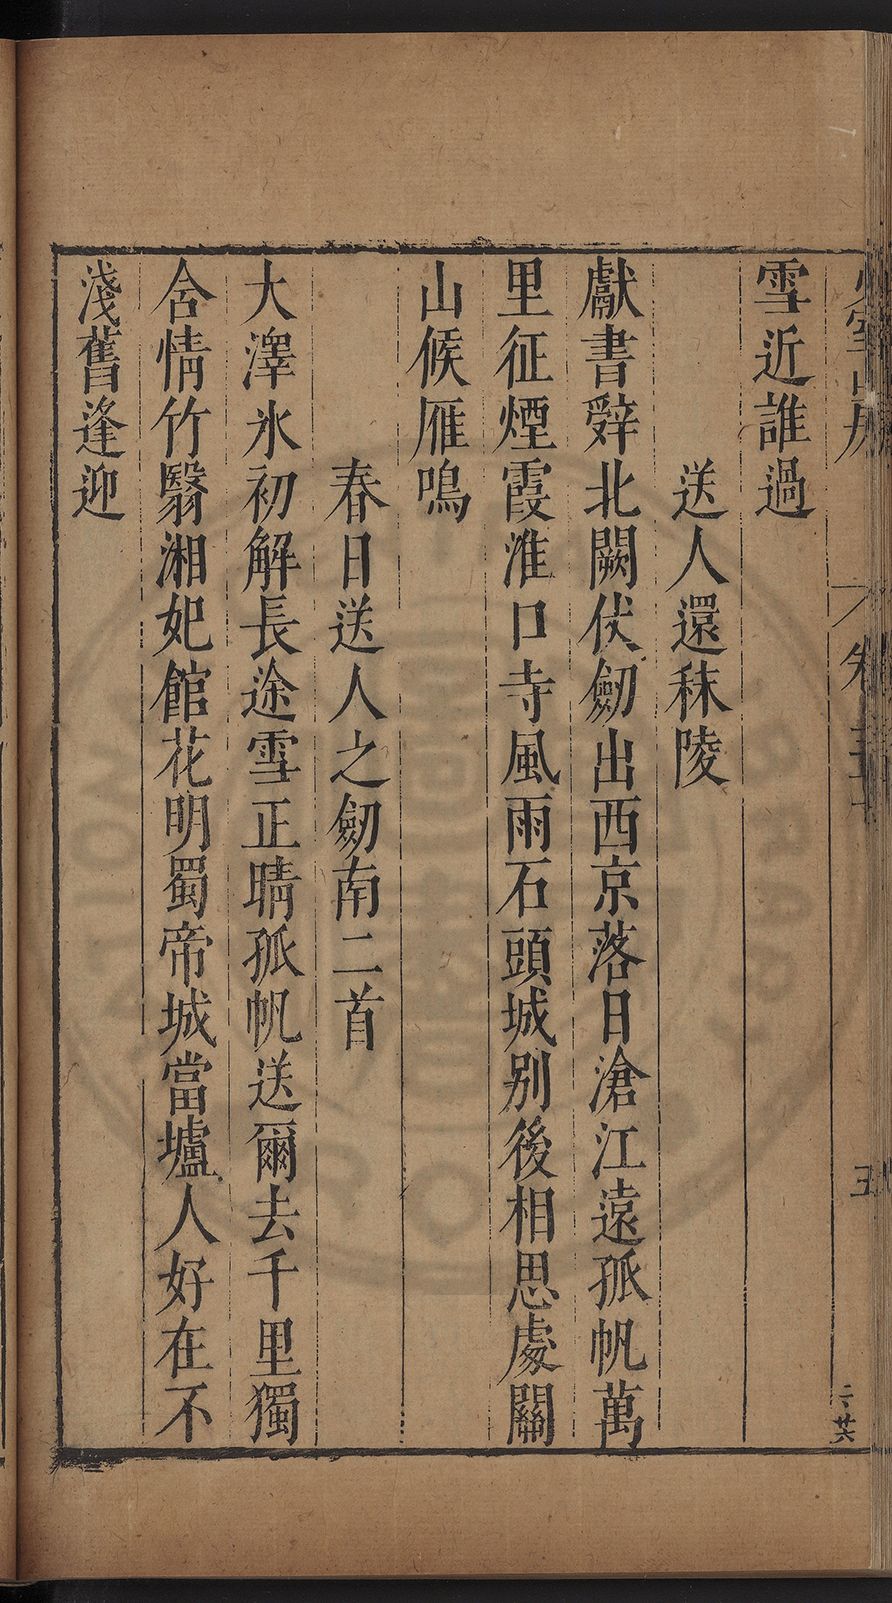 雪近誰過
送人還秣陵
獻書辭北闕伏劒出西京落日滄江遠孤帆萬
里征煙霞淮口寺風雨石頭城別後相思處關
山候雁鳴
春日送人之劒南二首
大澤氷初解長途雪正晴孤帆送爾去千里獨
含情竹翳湘妃館花明蜀帝城當壚人好在不
淺舊逢迎